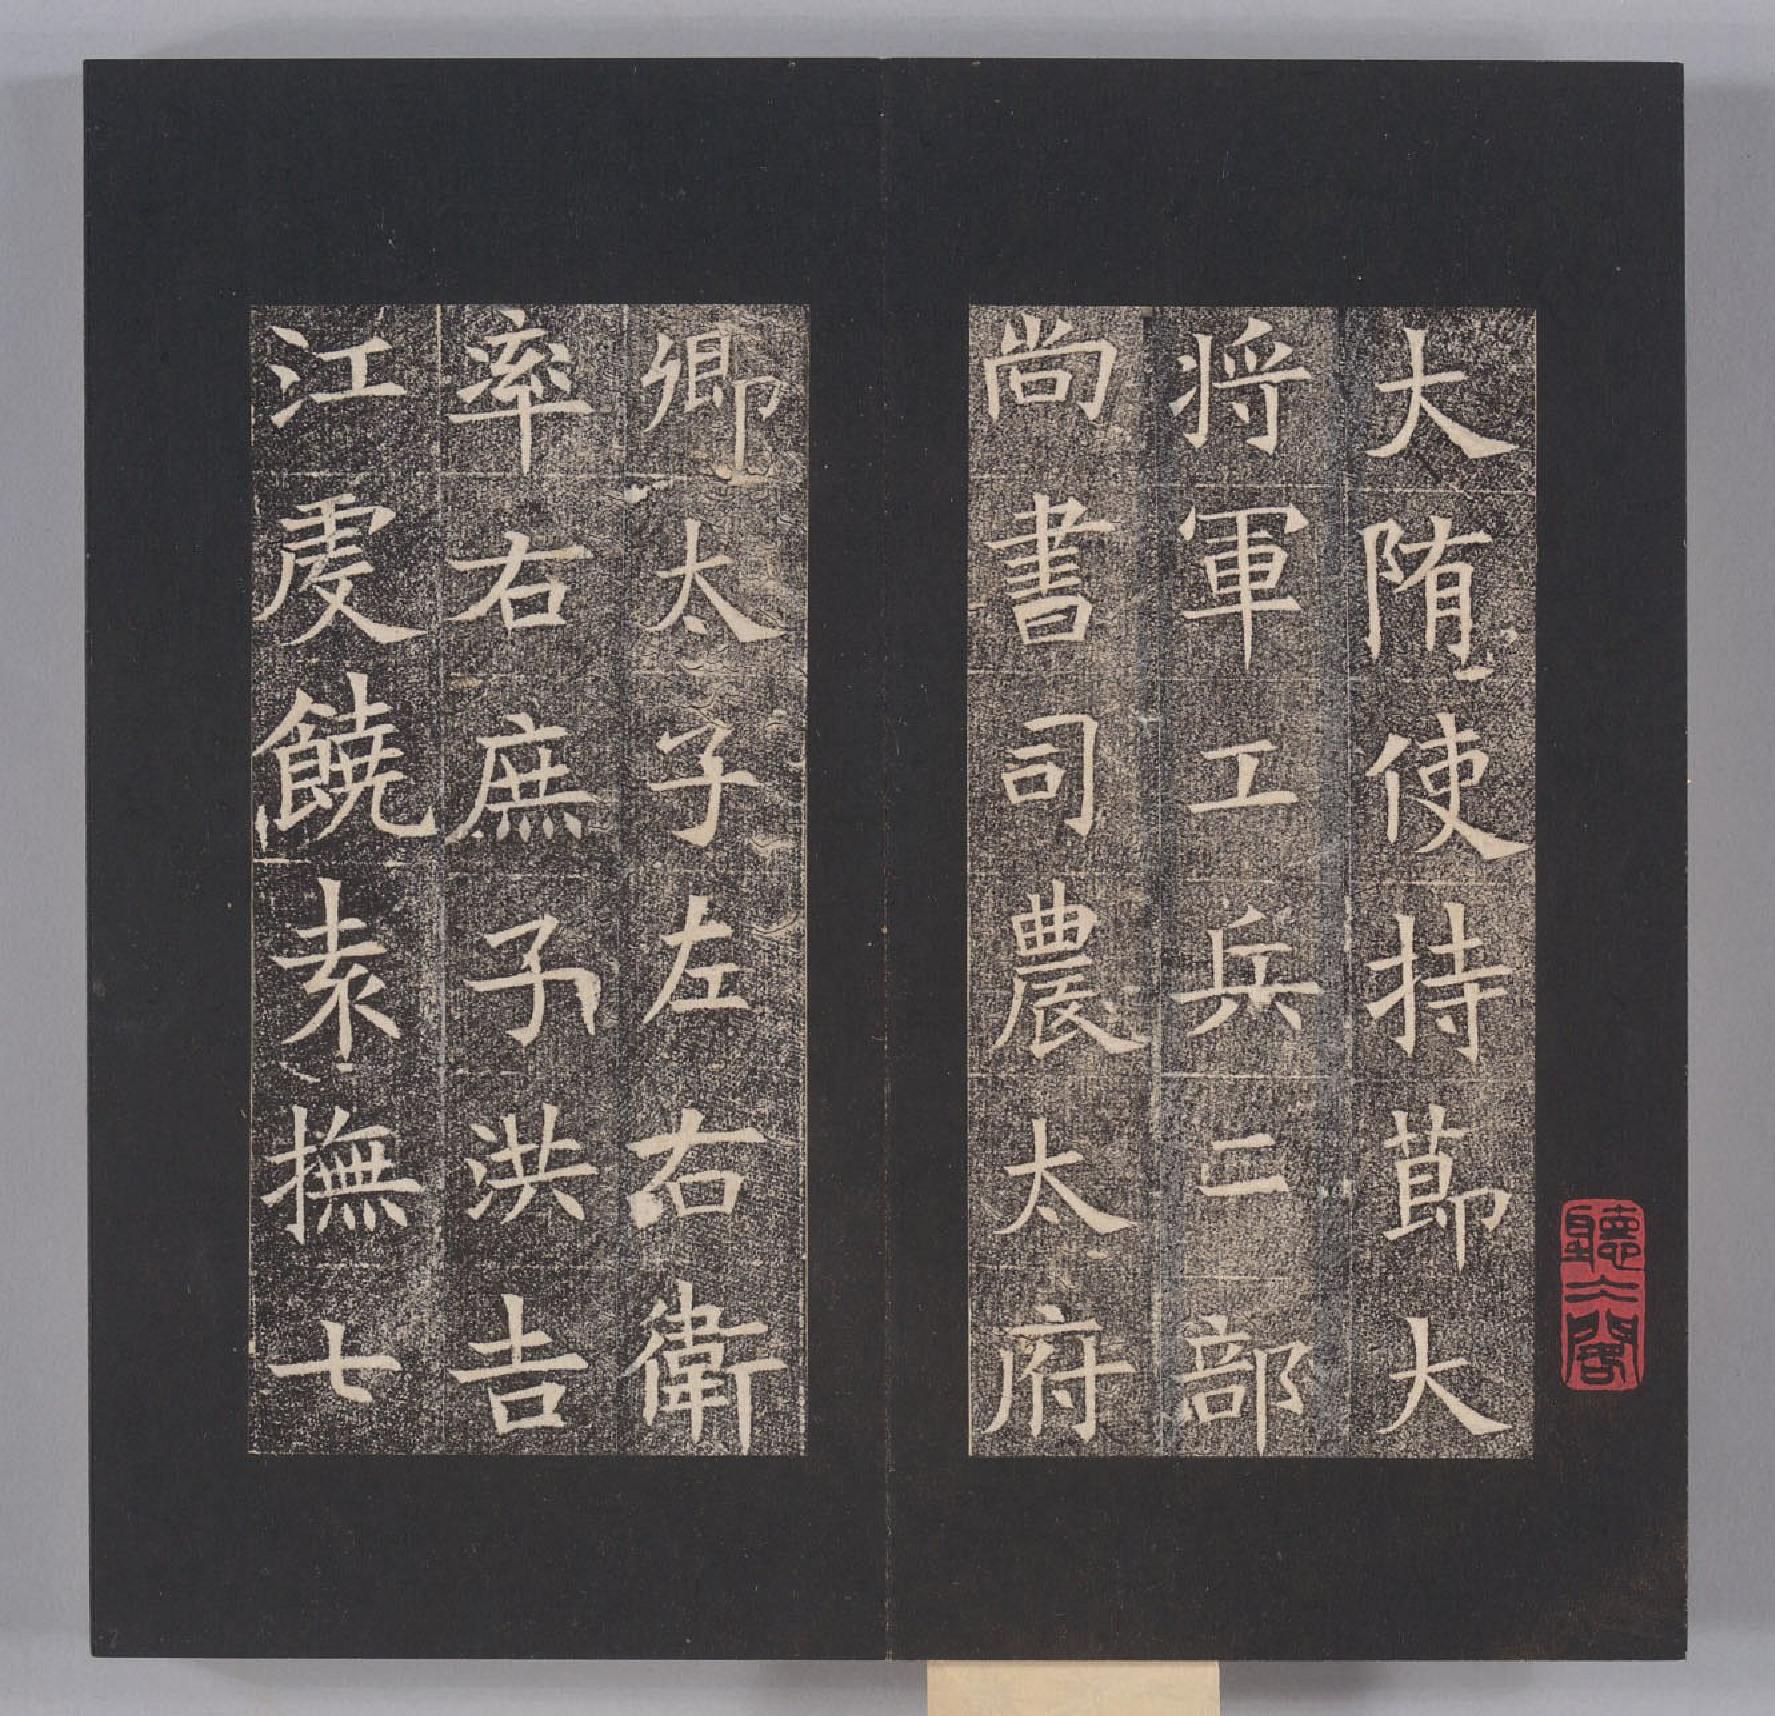 大隋使持節大
将軍工兵二部
尚書司農太府
卿太子左右衛
率右庶子洪吉
江虔饒袁撫七